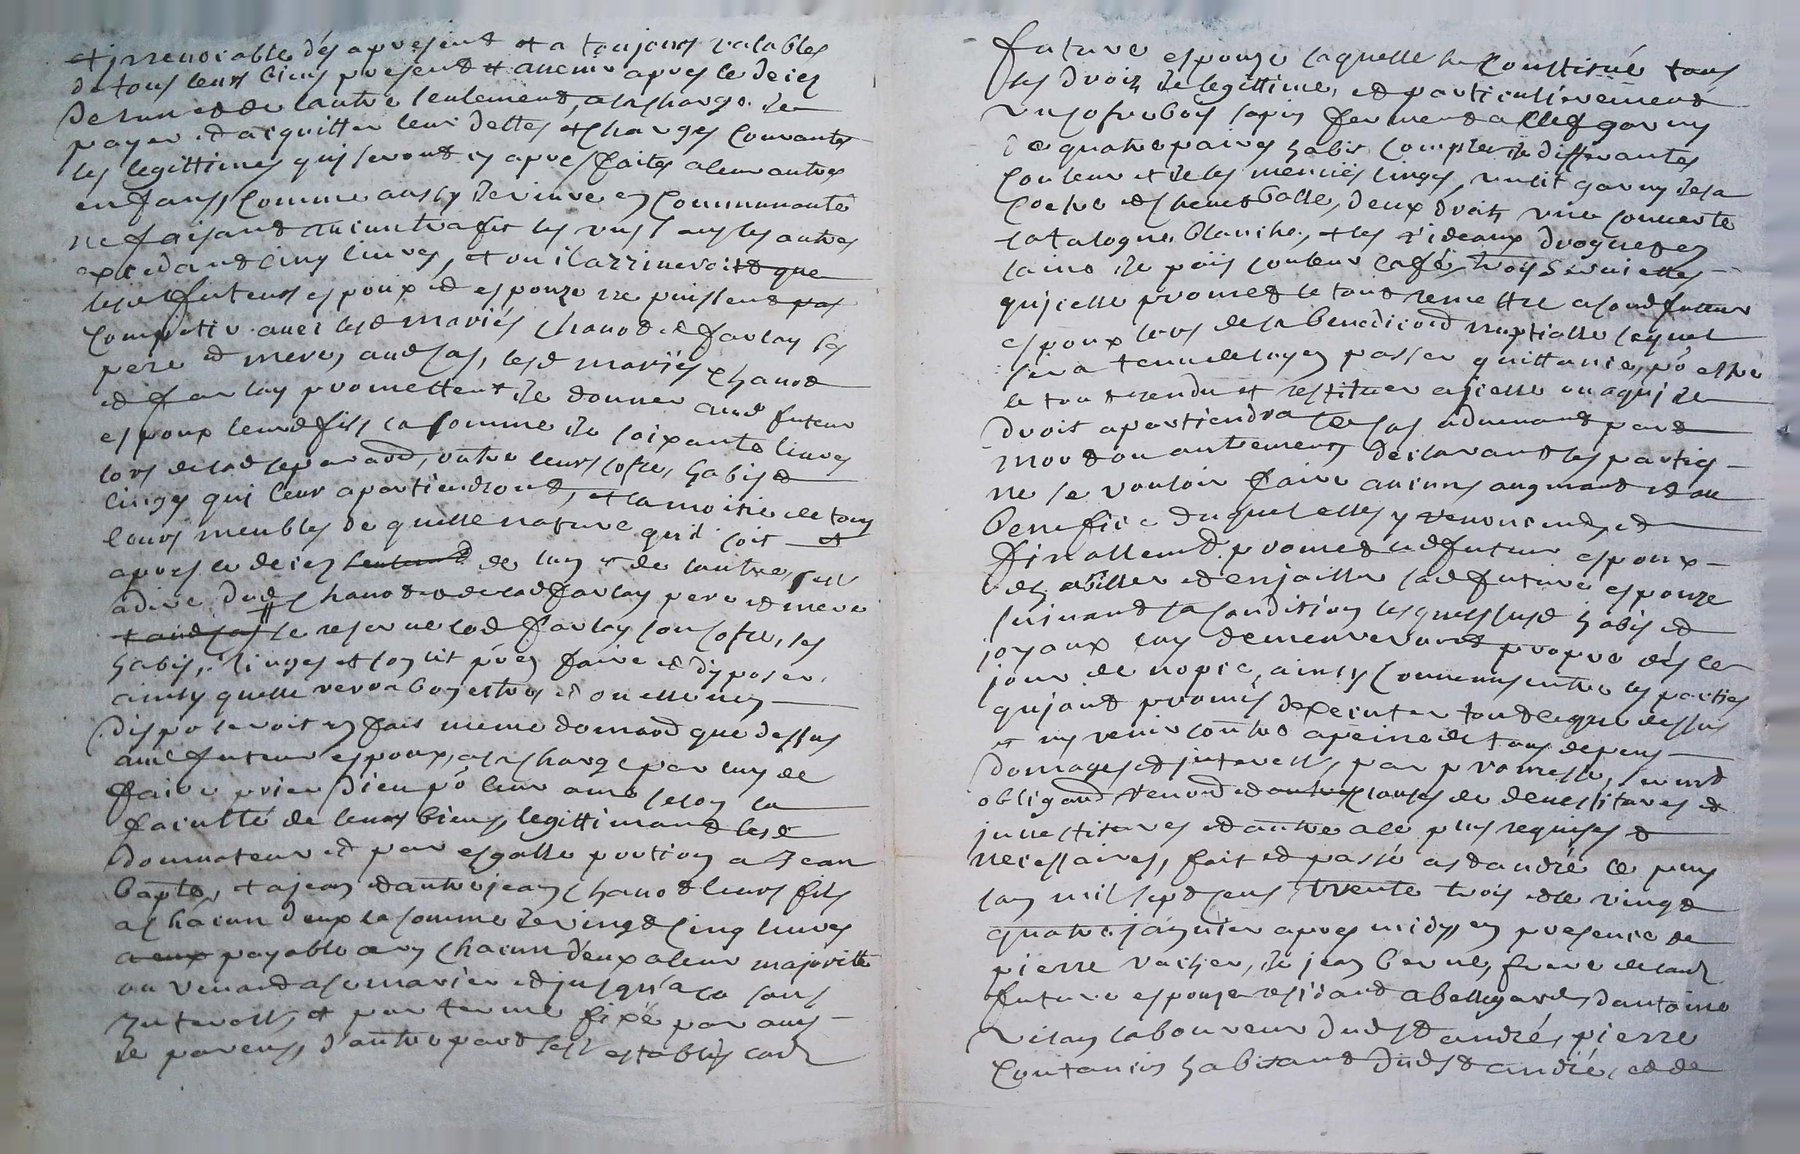 et irrenocable dés apresent et a toujours valables
de tous leurs biens present et auenir apres le deces
de lun et de lautre seulement, a la charge de
payer et acquitter leurs dettes et charges courantes
les legittimes quj seront cy apres faites a leur autres
enfans, comme aussy de viure en communauté
ne faisant aucun trafic les uns sans les autres
excedant cinq liures, et ou il arriueroit que
lesd futeurs espoux et espouze ne puissent pas
compatir auec lesd mariés chanot et farlay ses
pere et mere, aud cas, lesd mariés chanot
et farlay promettent de donner aud futeur
espoux leurd fils la somme de soixante liures
lors de lad separaõn, outre leurs cofre, habis et
linges quj leur apartiendront, et la moitie de tous
leurs meubles de quelle nature quil soit et
apres le deces de lun et de lautre, cest
adire dud chanot et de lad farlay pere et mere
se reserue lad farlay son cofre, ses
habis, linges et son lit pr en faire et disposer
ainsy quelle verra bon estre et ou elle nen
disposeroit en fait meme donnaõn que dessus
aud futeur espoux, a la charge par luy de
faire prier Dieu pr leur ame selon la
faculté de leurs biens, legittimant lesd
donnateur et par esgalle portion a Jean
bapte, et a jean et autre jean chanot leurs fils
a chacun deux la somme de vingt cinq liures
a eux payable a un chacun deux a leur majorité
ou venant a se marier et jusqu'a ce sans
Interest, et par terme fixé par amys
de parens, d'autre part sest establÿ lad
future espouze laquelle se constitué tous
ses droits de legittime, et particulierement
un cofre boys sapin fermant a clef garny
de quatre paires habis complet de differantes
couleur et de ses menües linges, un lit garny de sa
coetre et cheuet balle, deux draps, une couuerte
catalogne blanche, et les rideaux droguet en
laine de païs couleur café, trois seruiettes
quj celle promet le tout remettre a sond futeur
espoux lors de la benediction nuptialle lequel
sera tenu de luy en passer quittance, pr estre
le tout rendu et restituer a jcelle ou a quj de
droit apartiendra le cas aduenant par
mort ou autrement, declarant les parties
ne se vouloir faire aucuns augmant et au
benefice duquel elles y renoncent, et
finallement promet led futeur espoux
dez abiller et enjoailler lad future espouze
suiuant sa condition lesquels susd habis et
joyaux luy demeureront propre dés le
jour de nopce, ainsy conuenus entre les parties
quj ont promis dexecuter tout ce que dessus
et ny venir contre a peine de tous depens
domages et jnterest, par promesse, serment
obligaõn renonõn et autres clauses de deuestitures et
jnuestitures et autre a ce plus requises et
necessaires, fait et passé a st andré le puys
lan mil sept cens trente trois et le vingt
quatre januier apres midy, en presence de
pierre vacher, de jean berne, frere de lad
future espouze residant a bellegarde, dantoine
vilay laboureur dud st andré, pierre
coutancin habitant dud st andré, et de